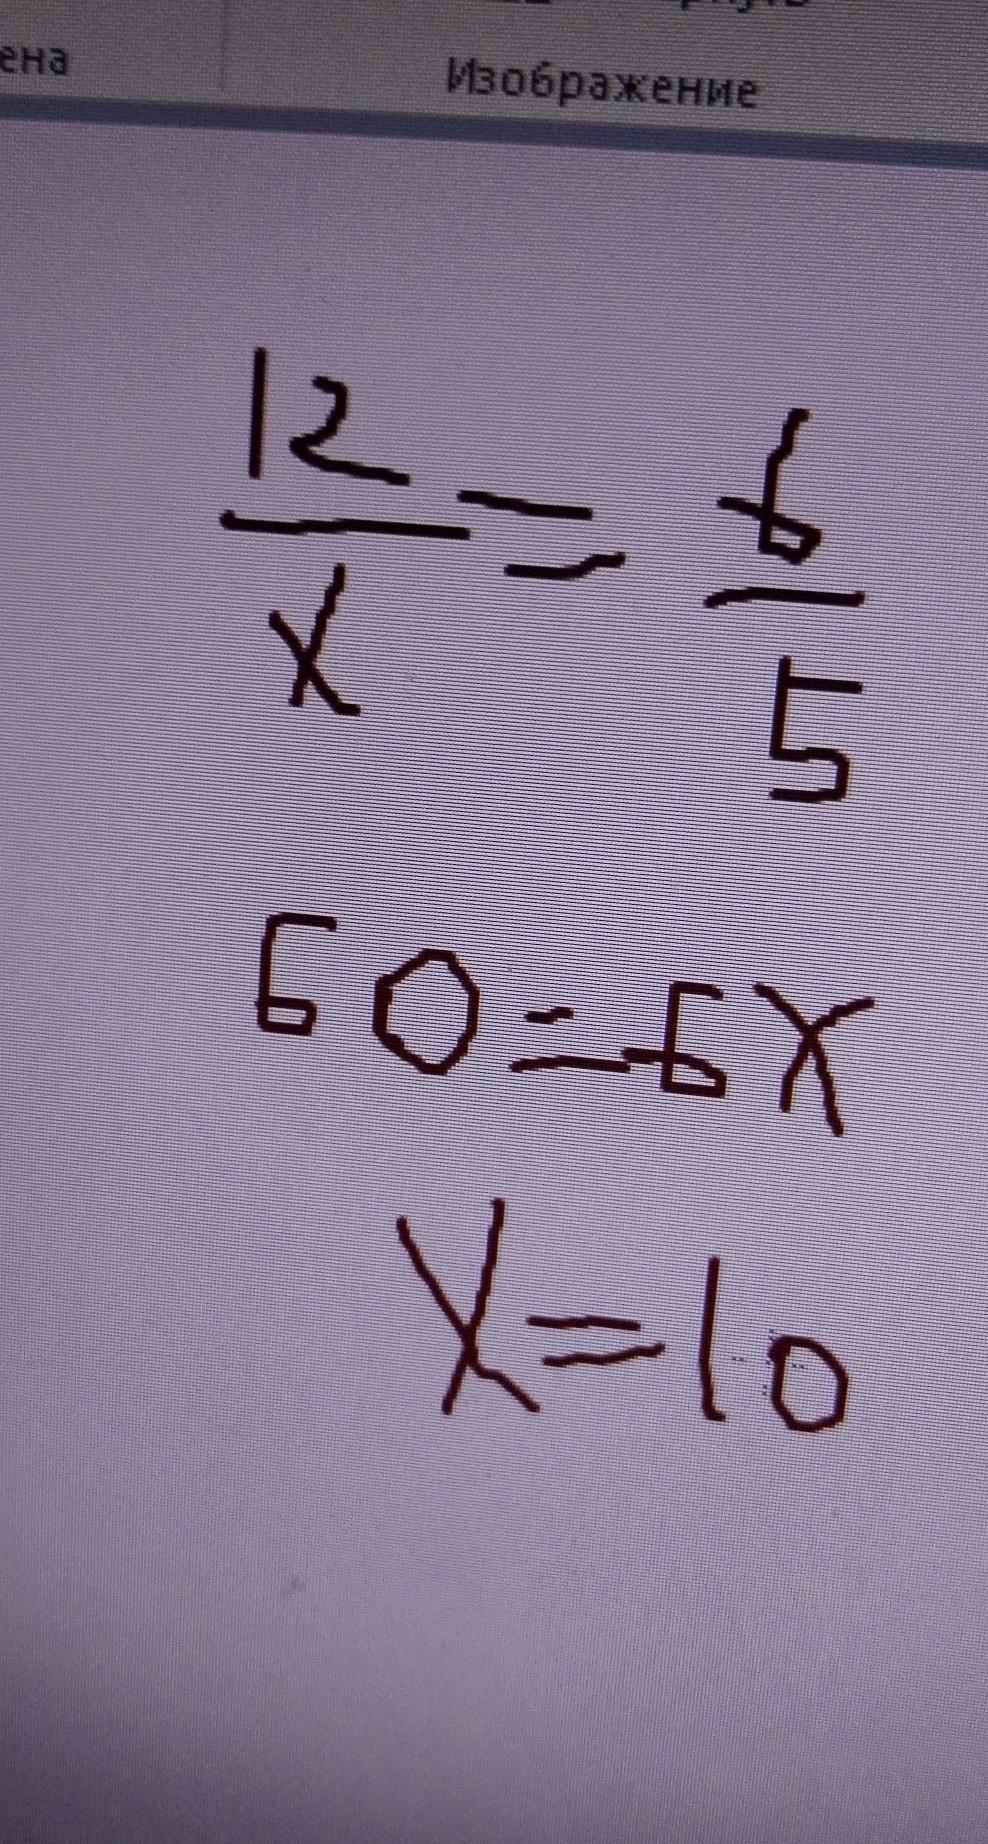 ена Изображение
12/x = 6/5
60 = 6x
x = 10